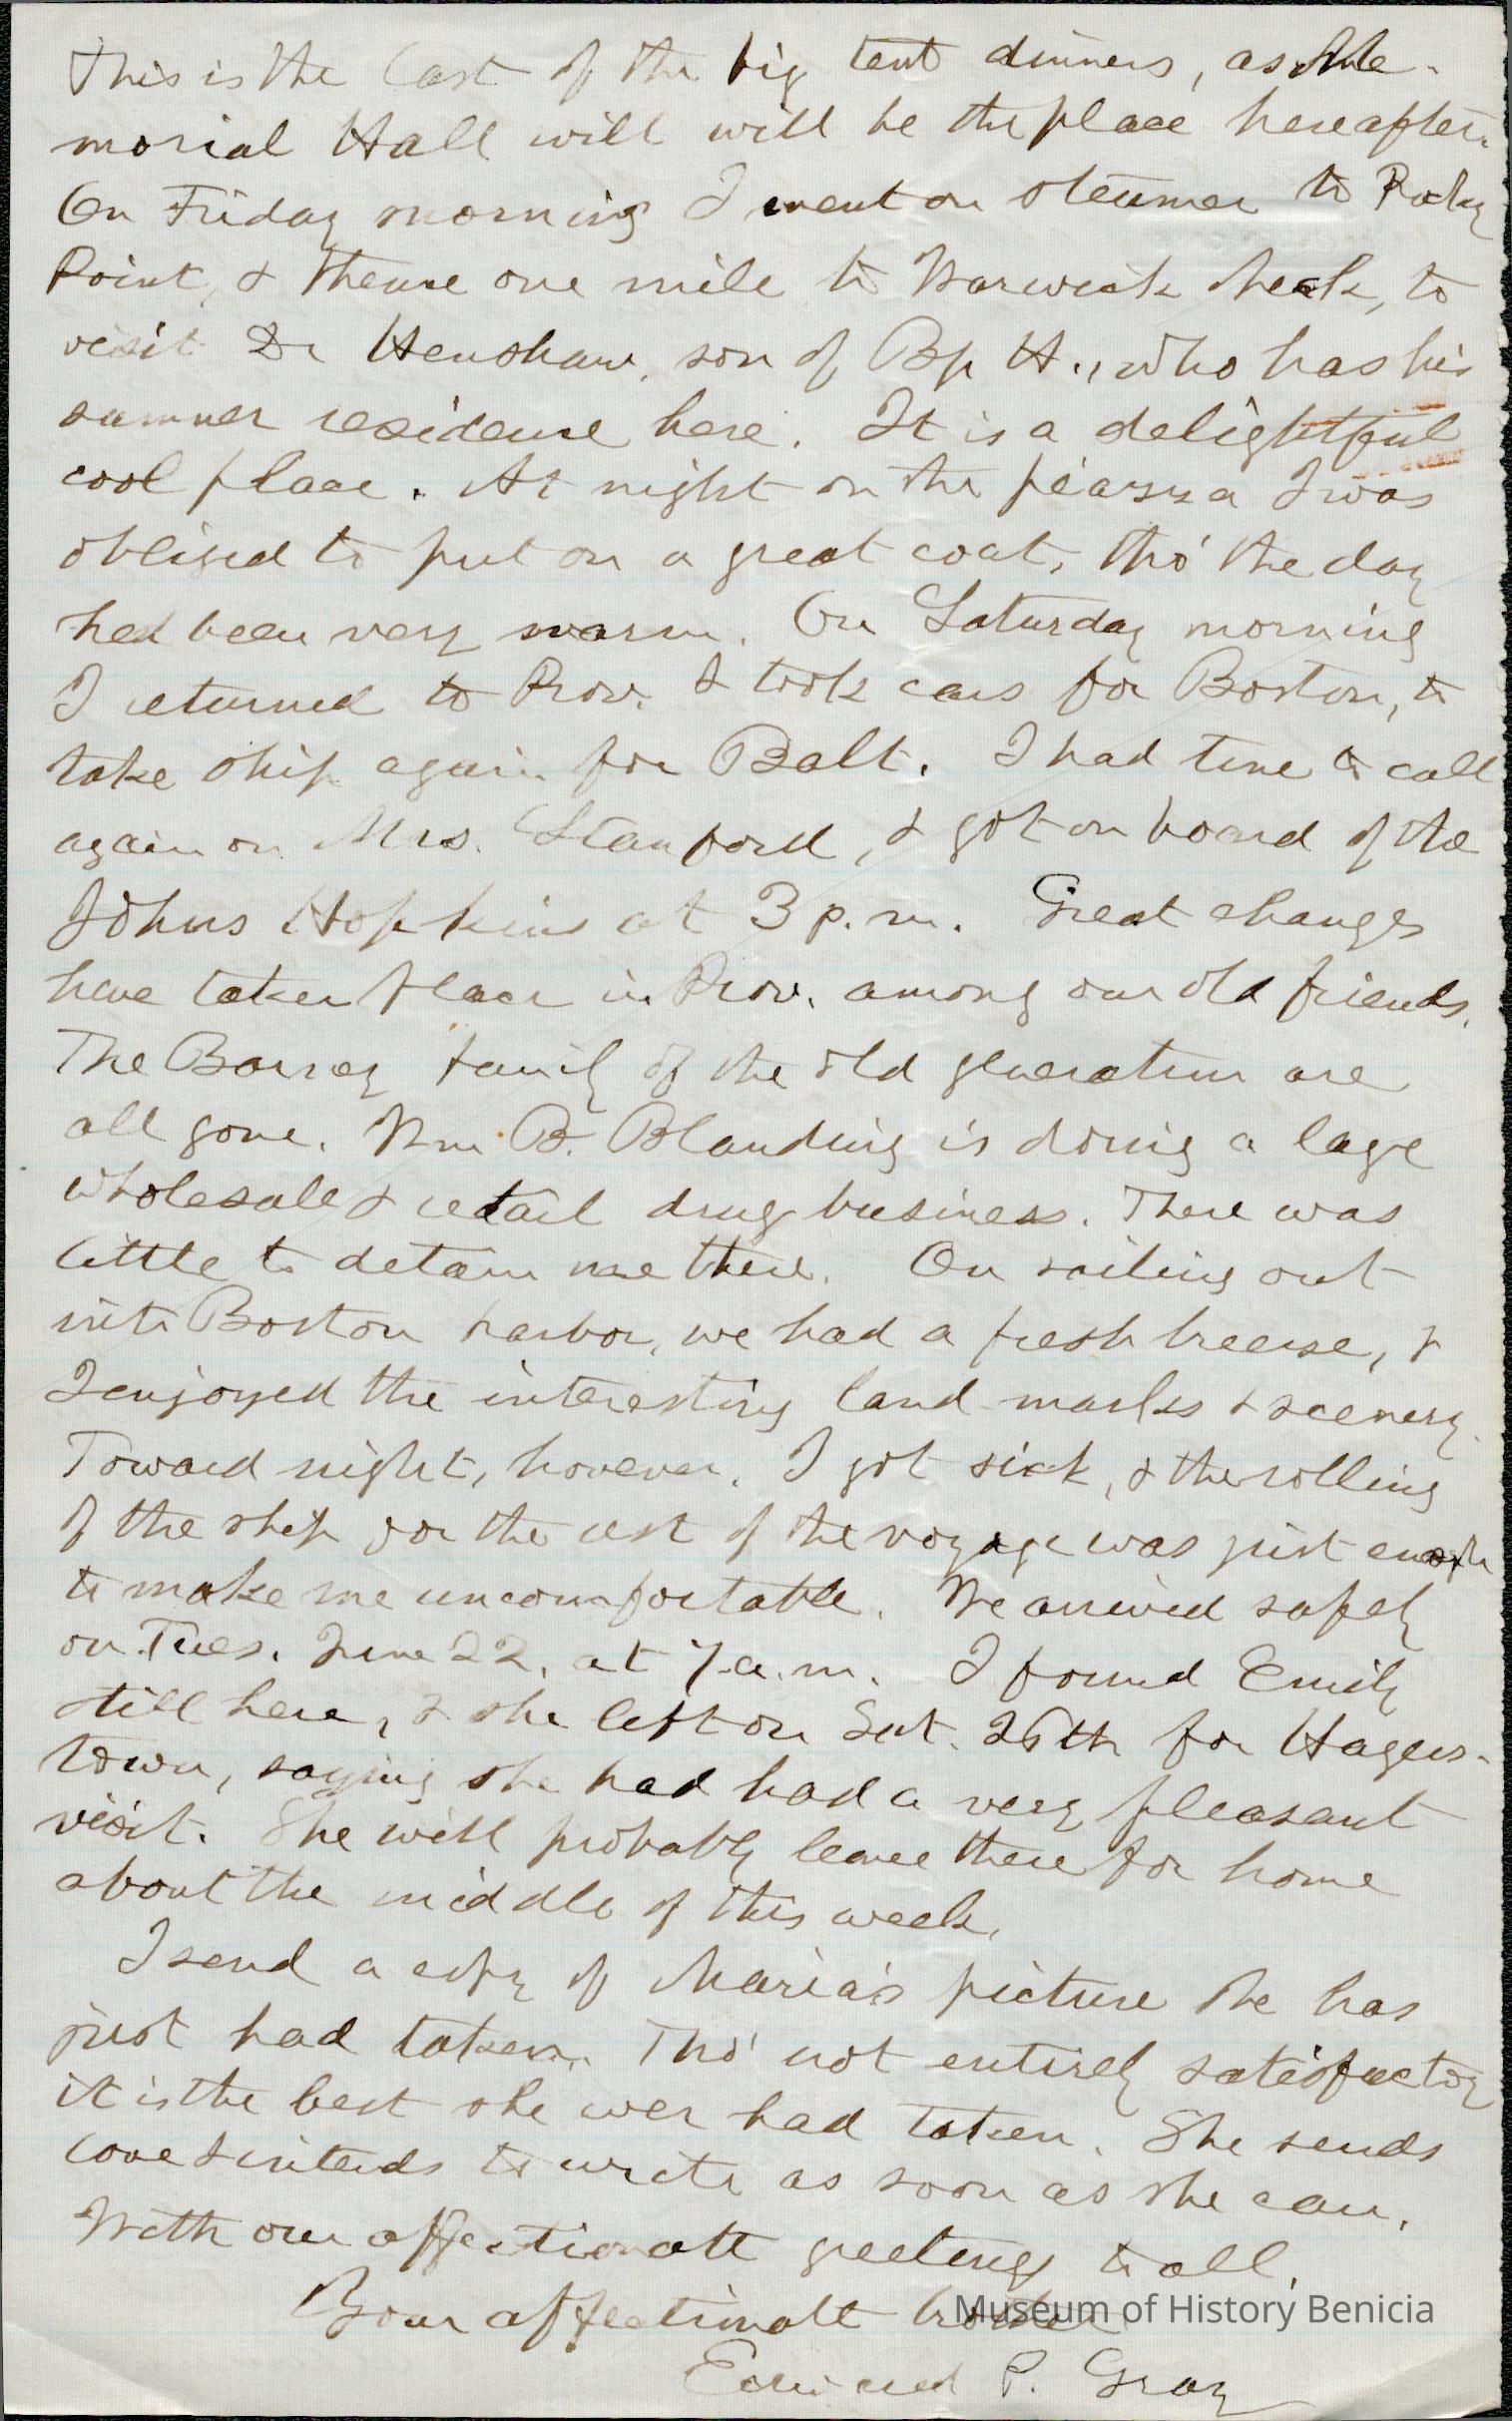 This is the last of the big tent dinners, as Me-
morial Hall will will be the place hereafter.
On Friday morning I went on steamer to Rocky
Point, & thence one mile to Warwick Neck, to
visit Dr Henshaw, son of Bp H., who has his
summer residence here. It is a delightful
cool place. At night on the piazza I was
obliged to put on a great coat, tho' the day
had been very warm. On Saturday morning
I returned to Prov. & took cars for Boston, to
take ship again for Balt. I had time to call
again on Mrs. Stanford, & got on board of the
Johns Hopkins at 3 p.m. Great changes
have taken place in Prov. among our old friends.
The Barrey family of the old generation are
all gone. Wm B. Blanding is doing a large
wholesale & retail drug business. There was
little to detain me there. On sailing out
into Boston harbor, we had a fresh breeze, &
I enjoyed the interesting land marks & scenery.
Toward night, however, I got sick, & the rolling
of the ship for the rest of the voyage was just enough
to make me uncomfortable. We arrived safely
on Tues. June 22, at 7 a.m. I found Emily
still here, & she left on Sat. 26th for Hagers-
town, saying she had had a very pleasant
visit. She will probably leave there for home
about the middle of this week.
I send a copy of Maria's picture she has
just had taken. Tho' not entirely satisfactory
it is the best she ever had taken. She sends
love & intends to write as soon as she can.
With our affectionate greetings to all,
Your affectionate brother
Edward P. Gray
Museum of History Benicia